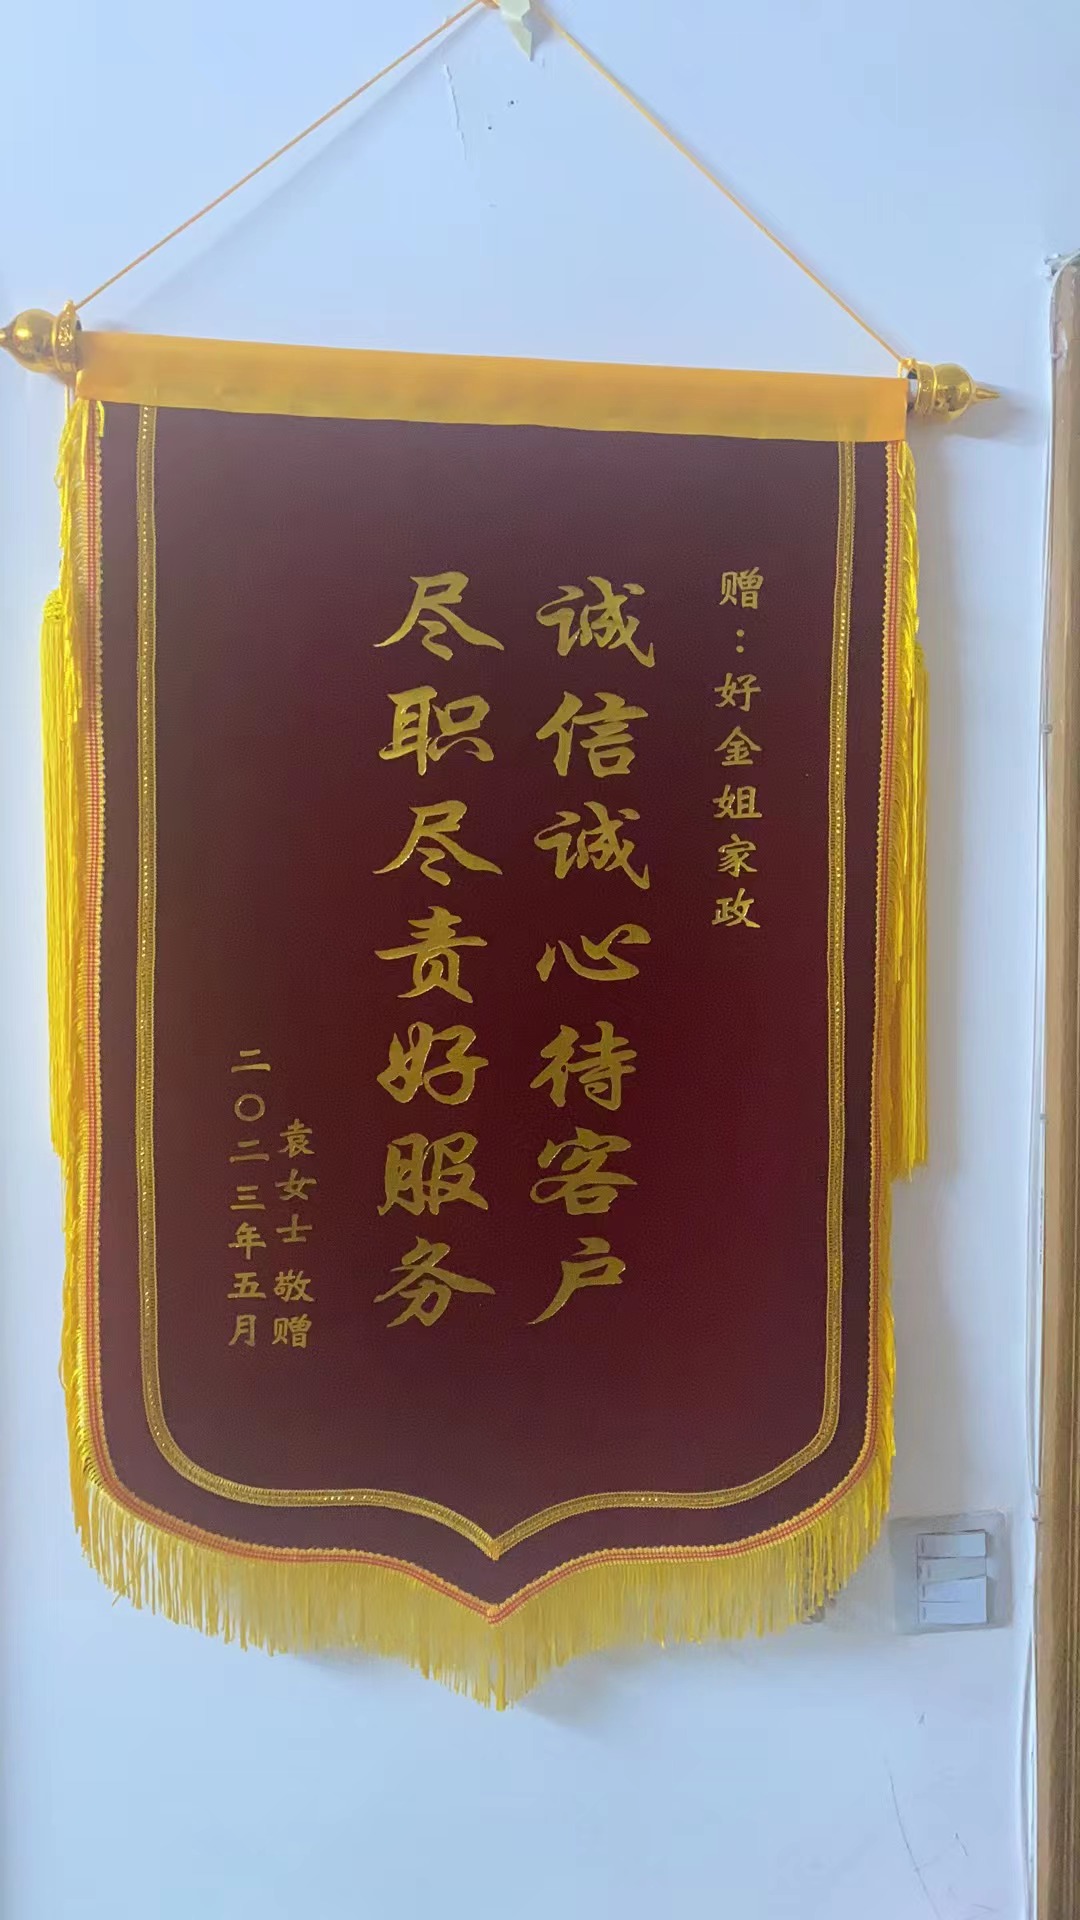 赠：好金姐家政
诚信诚心待客户
尽职尽责好服务
袁女士 敬赠
二〇二三年五月